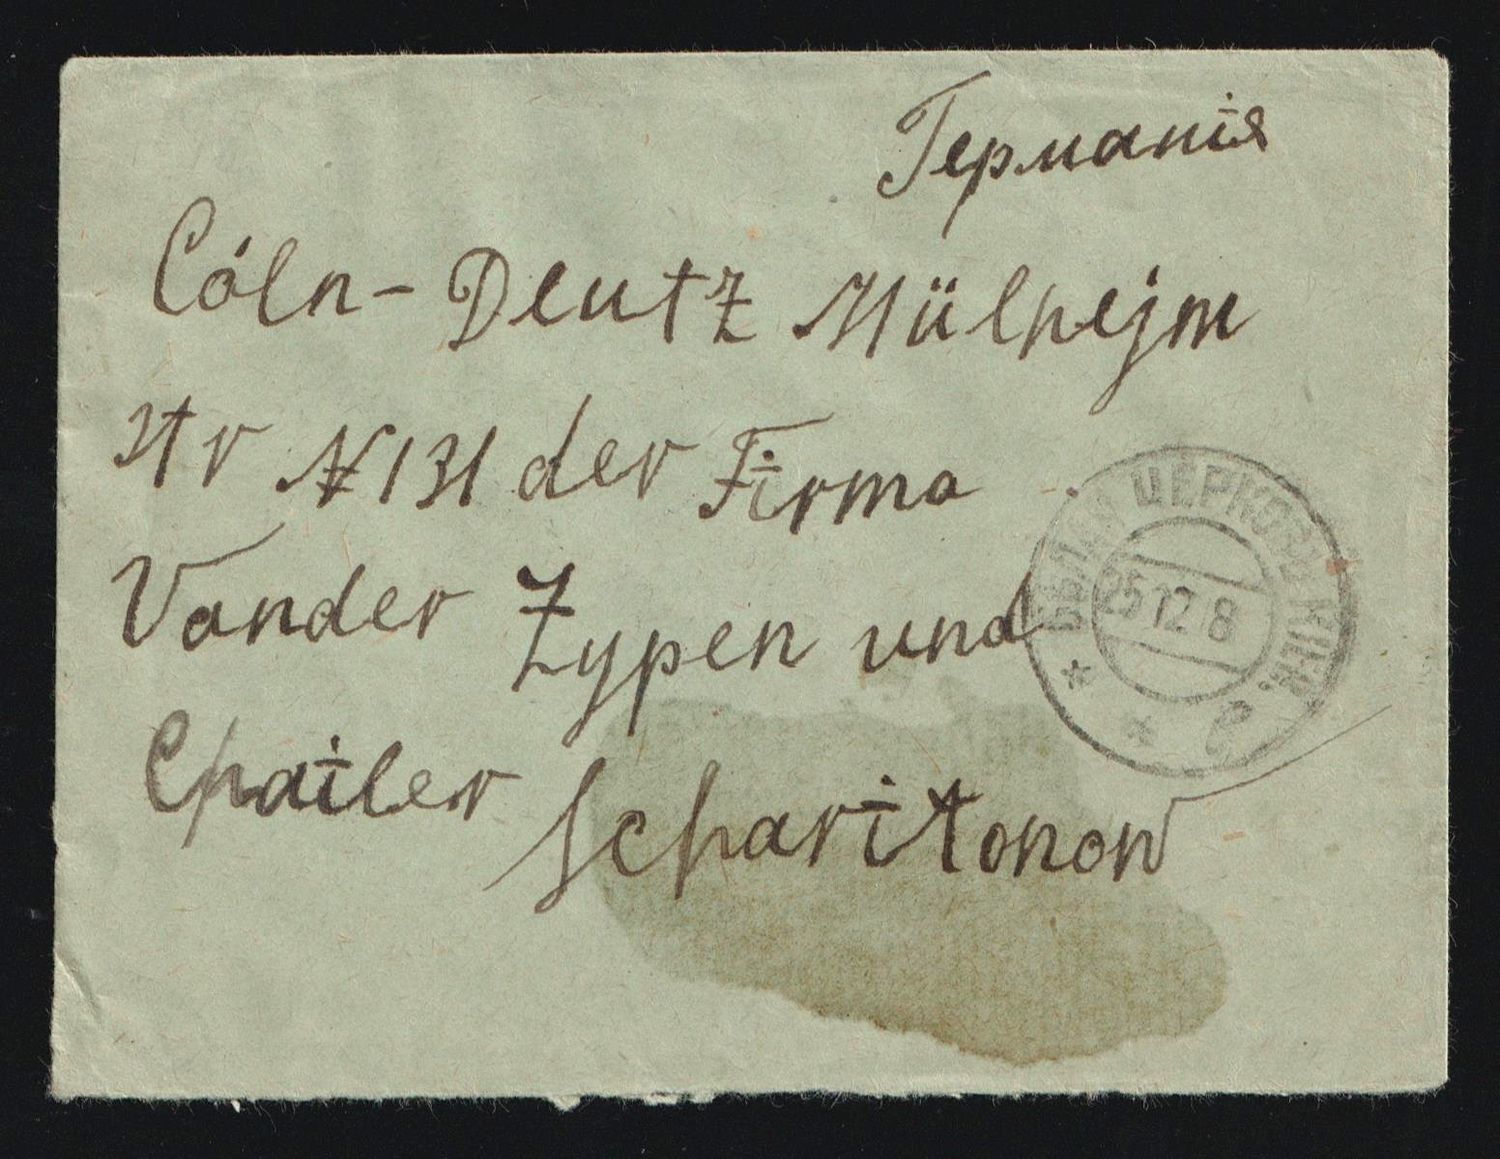 Германія
Cöln-Deutz Mülhejm
str N131 der Firma
Vander Zypen und
Chailer Scharitonow
БѢЛАЯ ЦЕРКОВЬ КІЕВ.
25 12 8